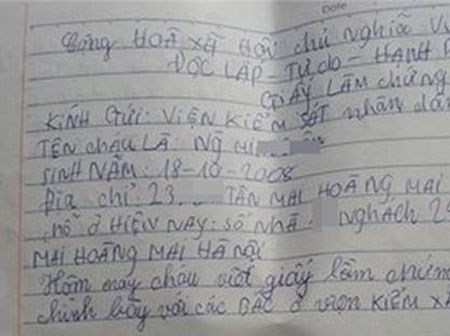 Date
Cộng HOÀ XÃ Hội chủ nghĩa Vi
ĐỘC LẬP - Tự do - HẠNH P
GIẤY LÀM chứng
KÍNH Gửi: Viện KIỂM SÁT nhân dân
TÊN CHÁU LÀ: Ng
SINH NĂM: 18-10-2008
Địa chỉ: 23 TÂN MAI HOÀNG MAI
ở HIỆN NAY: SỐ NHÀ NGHÁCH 25
MAI HOÀNG MAI HÀ NỘI
Hôm nay cháu viết giấy làm chứn
chình bày với các BÁC ở viện KIỂM XÁ